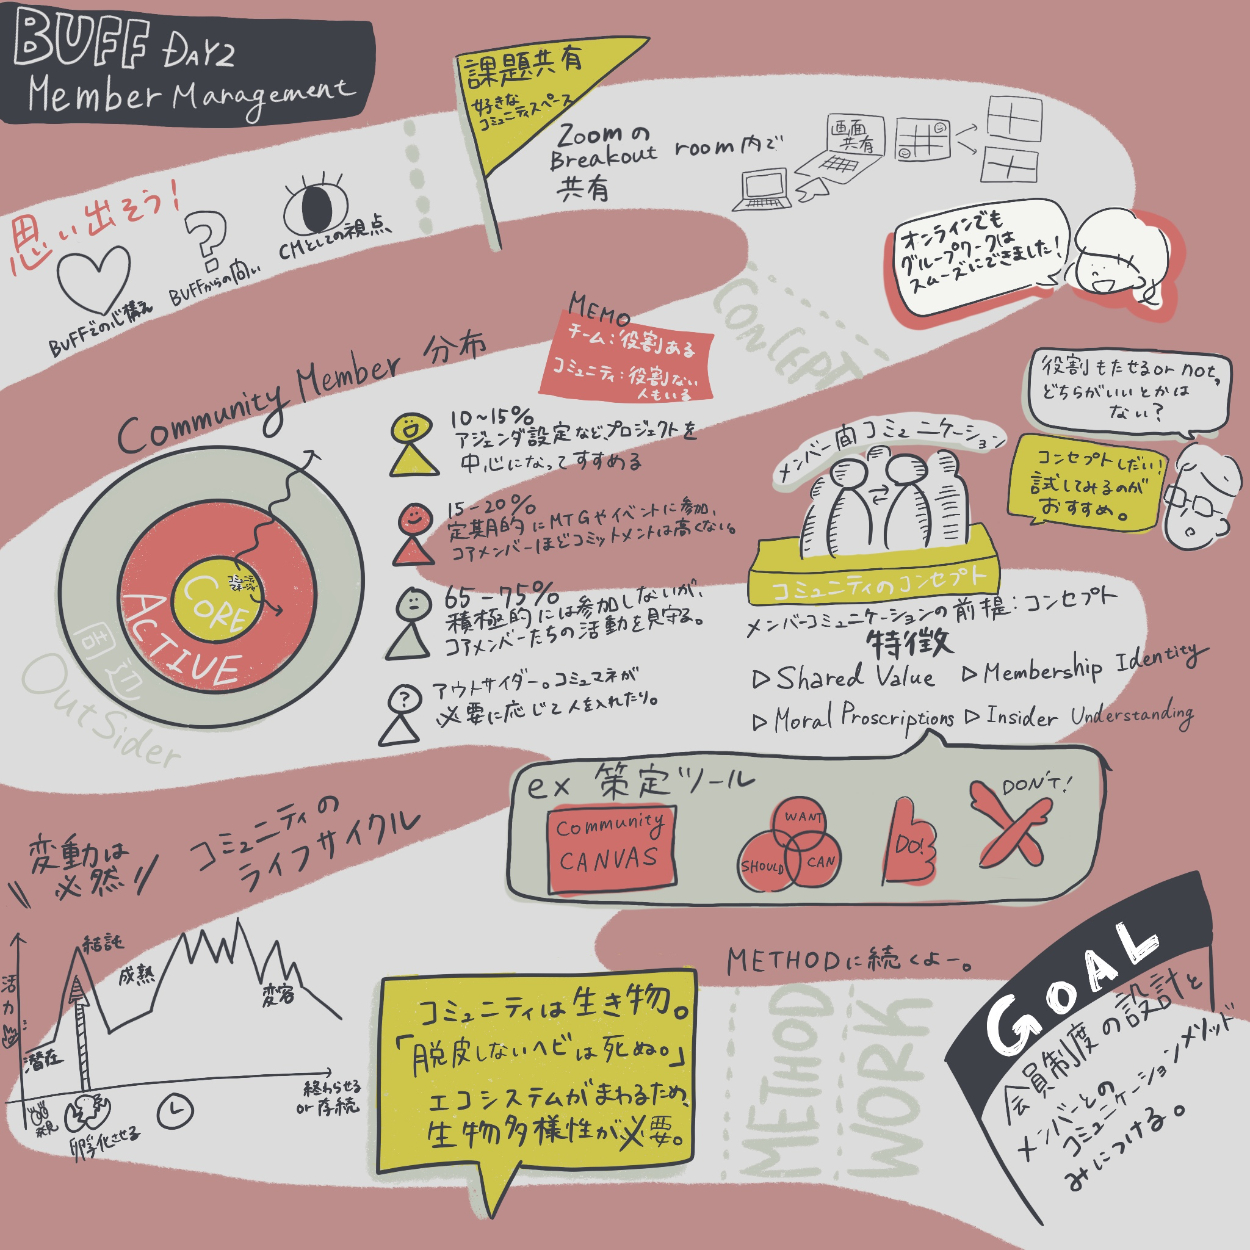 BUFF DAY2
Member Management
思い出そう!
BUFFでの心構え
BUFFからの問い
CMとしての視点、
課題共有
好きな
コミュニティスペース
Zoomの
Breakout room内で
共有
画面
共有
オンラインでも
グループワークは
スムーズにできました!
CONCEPT
MEMO
チーム:役割ある
コミュニティ:役割ない
人もいる
Community Member 分布
CORE
ACTIVE
周辺
OutSider
10~15%
アジェンダ設定など、プロジェクトを
中心になってすすめる
15-20%
定期的にMTGやイベントに参加、
コアメンバーほどコミットメントは高くない。
65-75%
積極的には参加しないが、
コアメンバーたちの活動を見守る。
?
アウトサイダー。コミュマネが
必要に応じて人を入れたり。
メンバー間コミュニケーション
コミュニティのコンセプト
役割もたせるor not,
どちらがいいとかは
ない?
コンセプトしだい!
試してみるのが
おすすめ。
メンバーコミュニケーションの前提:コンセプト
特徴
▷Shared Value ▷Membership Identity
▷Moral Proscriptions ▷Insider Understanding
ex 策定ツール
Community
CANVAS
WANT
SHOULD
CAN
DO!
DON'T!
変動は
必然
コミュニティの
ライフサイクル
活力
潜在
結託
成熟
変容
発見
孵化させる
終わらせる
or 存続
コミュニティは生き物。
「脱皮しないヘビは死ぬ。」
エコシステムがまわるため、
生物多様性が必要。
METHODに続くよー。
METHOD
WORK
GOAL
会員制度の設計と
メンバーとの
コミュニケーションメソッド
みにつける。